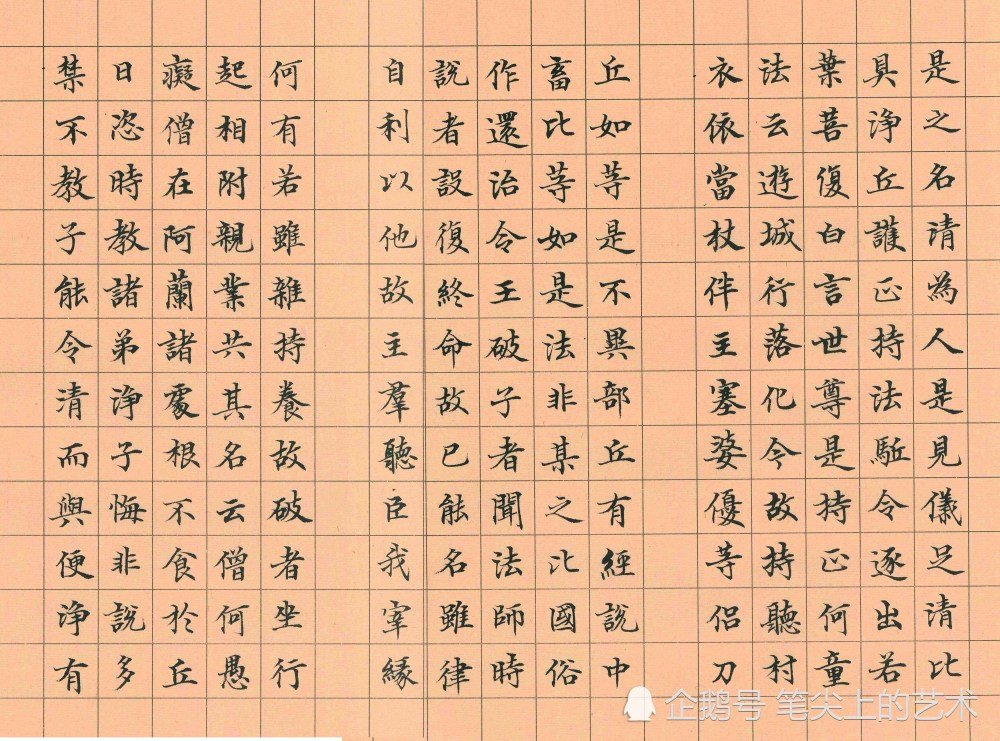 是之名请為人是見儀足请比
具净丘護正持法駈令逐出若
葉菩復白言世尊是持正何童
法云遊城行落化今故持聽村
衣依當杖伴主塞婆優等侣刀
丘如等是不異部丘有經説中
畜比等如是法非某之比國俗
作還治令王破子者聞法師時
説者設復終命故已能名雖律
自利以他故主羣聽臣我宰緣
何有若雖雜持養故破者坐行
起相附親業共其名云僧何愚
癡僧在阿蘭諸處根不食於丘
日恣時教諸弟净子悔非説多
禁不教子能令清而與便净有
企鹅号 笔尖上的艺术